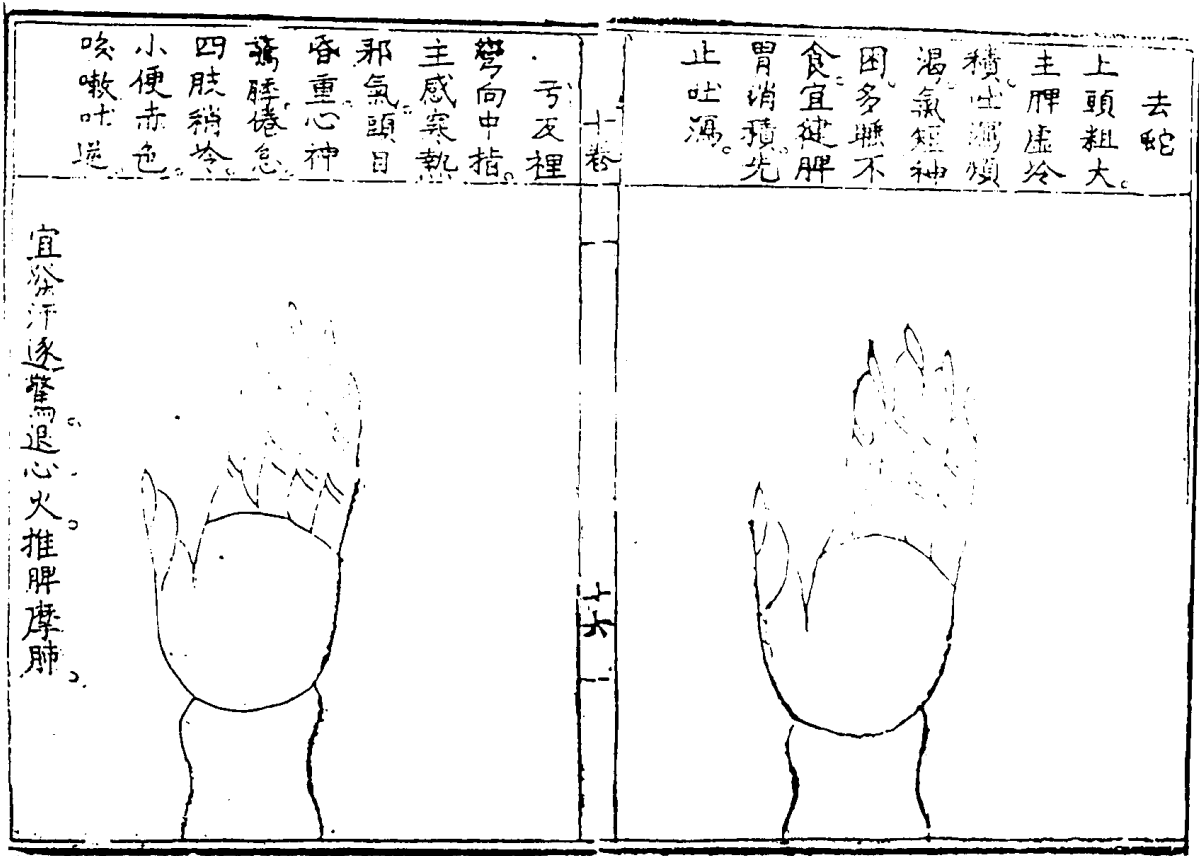 去蛇
上頭粗大。
主脾虛冷
積。吐瀉煩
渴。氣短神
困。多睡不
食。宜健脾
胃消積。先
止吐瀉。
十卷
十六
弓反裡
彎向中指。
主感寒熱
邪氣。頭目
昏重。心神
驚悸。倦怠。
四肢稍冷。
小便赤色。
咳嗽吐逆
宜發汗逐驚。退心火。推脾摩肺。